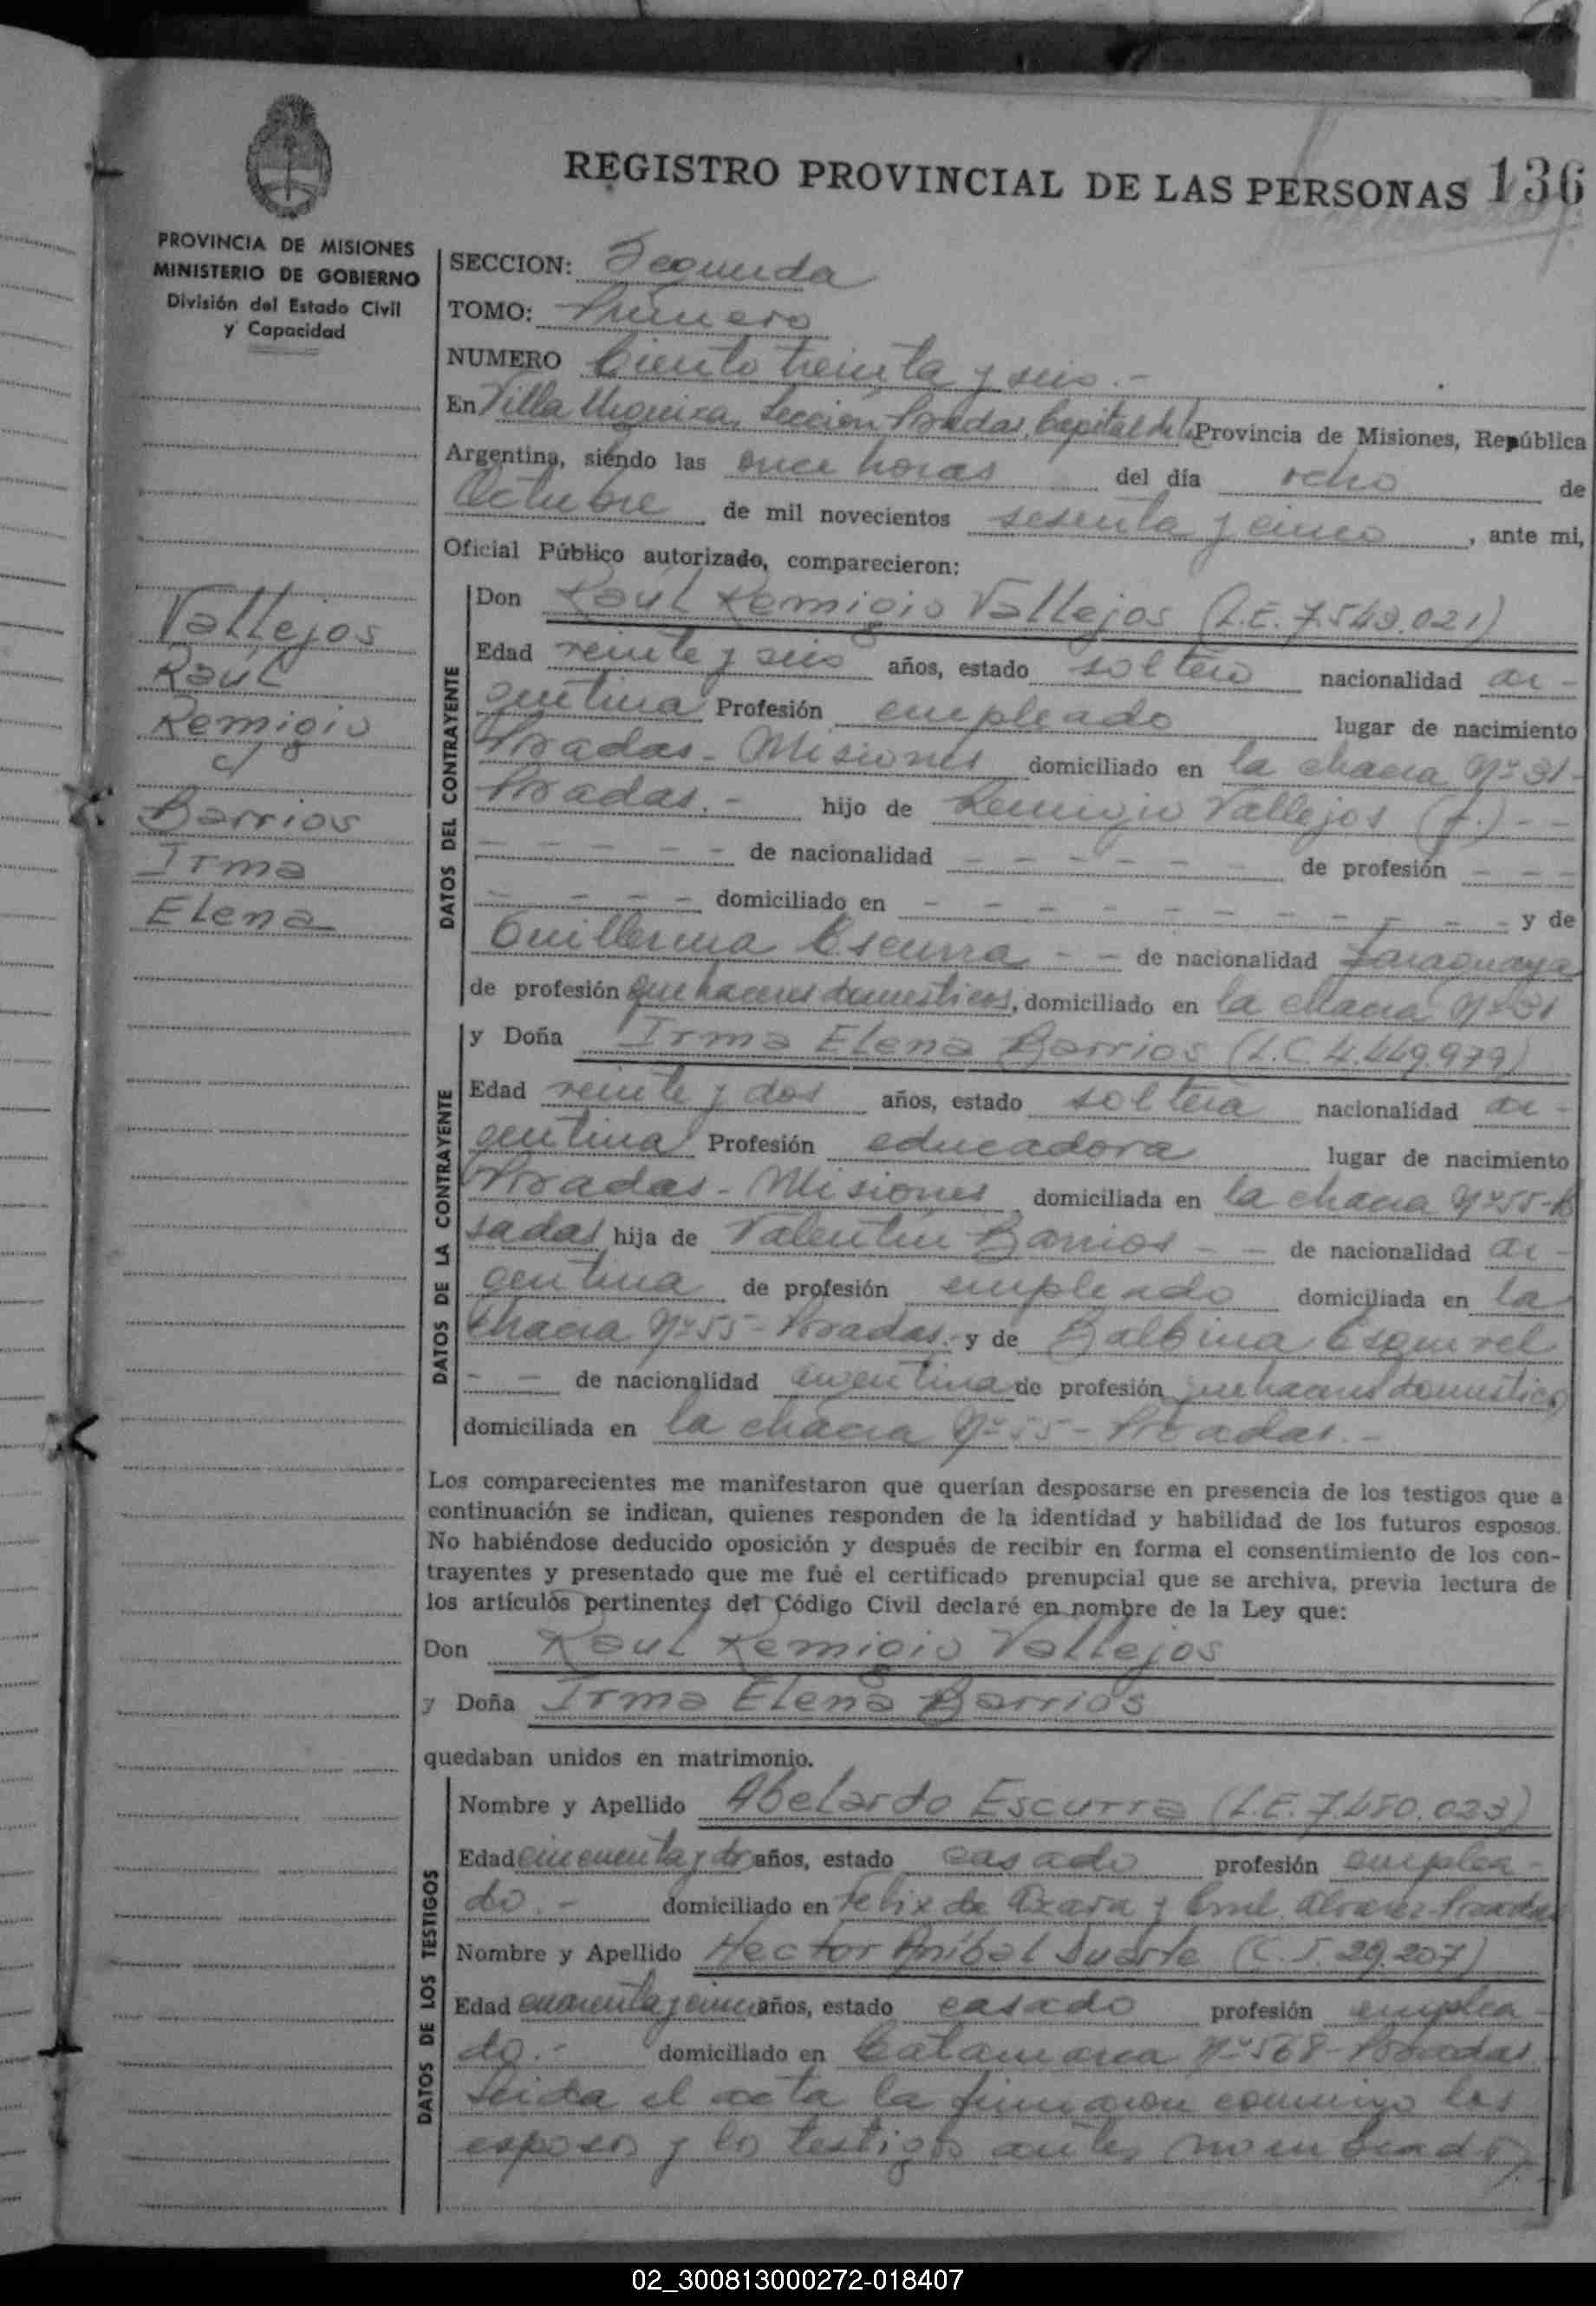 REGISTRO PROVINCIAL DE LAS PERSONAS 136
PROVINCIA DE MISIONES
MINISTERIO DE GOBIERNO
División del Estado Civil
y Capacidad
SECCION: Segunda
TOMO: Primero
NUMERO Ciento treinta y seis.-
En Villa Urquiza, Sección Posadas, Capital de la Provincia de Misiones, República
Argentina, siendo las once horas del día ocho de
Octubre de mil novecientos sesenta y cinco, ante mi,
Oficial Público autorizado, comparecieron:
Vallejos
Raúl
Remigio
c/
Barrios
Irma
Elena
DATOS DEL CONTRAYENTE
Don Raúl Remigio Vallejos (L.E. 7.543.021)
Edad veinte y seis años, estado soltero nacionalidad ar-
gentina Profesión empleado lugar de nacimiento
Posadas - Misiones domiciliado en la chacra Nº 31-
Posadas.- hijo de Remigio Vallejos (f.) - -
- - - - - de nacionalidad - - - - - de profesión - - -
- - - - domiciliado en - - - - - - - - - - y de
Guillerma Escurra - - de nacionalidad Paraguaya
de profesión quehaceres domesticos, domiciliado en la chacra Nº 31
DATOS DE LA CONTRAYENTE
y Doña Irma Elena Barrios (L.C. 4.449.979)
Edad veinte y dos años, estado soltera nacionalidad ar-
gentina Profesión educadora lugar de nacimiento
Posadas - Misiones domiciliada en la chacra Nº 55-Po
sadas hija de Valentín Barrios - - de nacionalidad ar-
gentina de profesión empleado domiciliada en la
chacra Nº 55 - Posadas.- y de Balbina Esquivel
- - de nacionalidad argentina de profesión quehaceres domesticos
domiciliada en la chacra Nº 55 - Posadas.-
Los comparecientes me manifestaron que querían desposarse en presencia de los testigos que a
continuación se indican, quienes responden de la identidad y habilidad de los futuros esposos.
No habiéndose deducido oposición y después de recibir en forma el consentimiento de los con-
trayentes y presentado que me fué el certificado prenupcial que se archiva, previa lectura de
los artículos pertinentes del Código Civil declaré en nombre de la Ley que:
Don Raul Remigio Vallejos
y Doña Irma Elena Barrios
quedaban unidos en matrimonio.
DATOS DE LOS TESTIGOS
Nombre y Apellido Abelardo Escurra (L.E. 7.480.023)
Edad cincuenta y años, estado casado profesión emplea-
do.- domiciliado en Felix de Azara y Cnel. Alvarez-Posadas
Nombre y Apellido Hector Anibal Duarte (C.I. 29.207)
Edad cuarenta y cinco años, estado casado profesión emplea-
do.- domiciliado en Catamarca Nº 568 - Posadas
Leida el acta la firmaron conmigo los
esposos y los testigos antes nombrados.
02_300813000272-018407